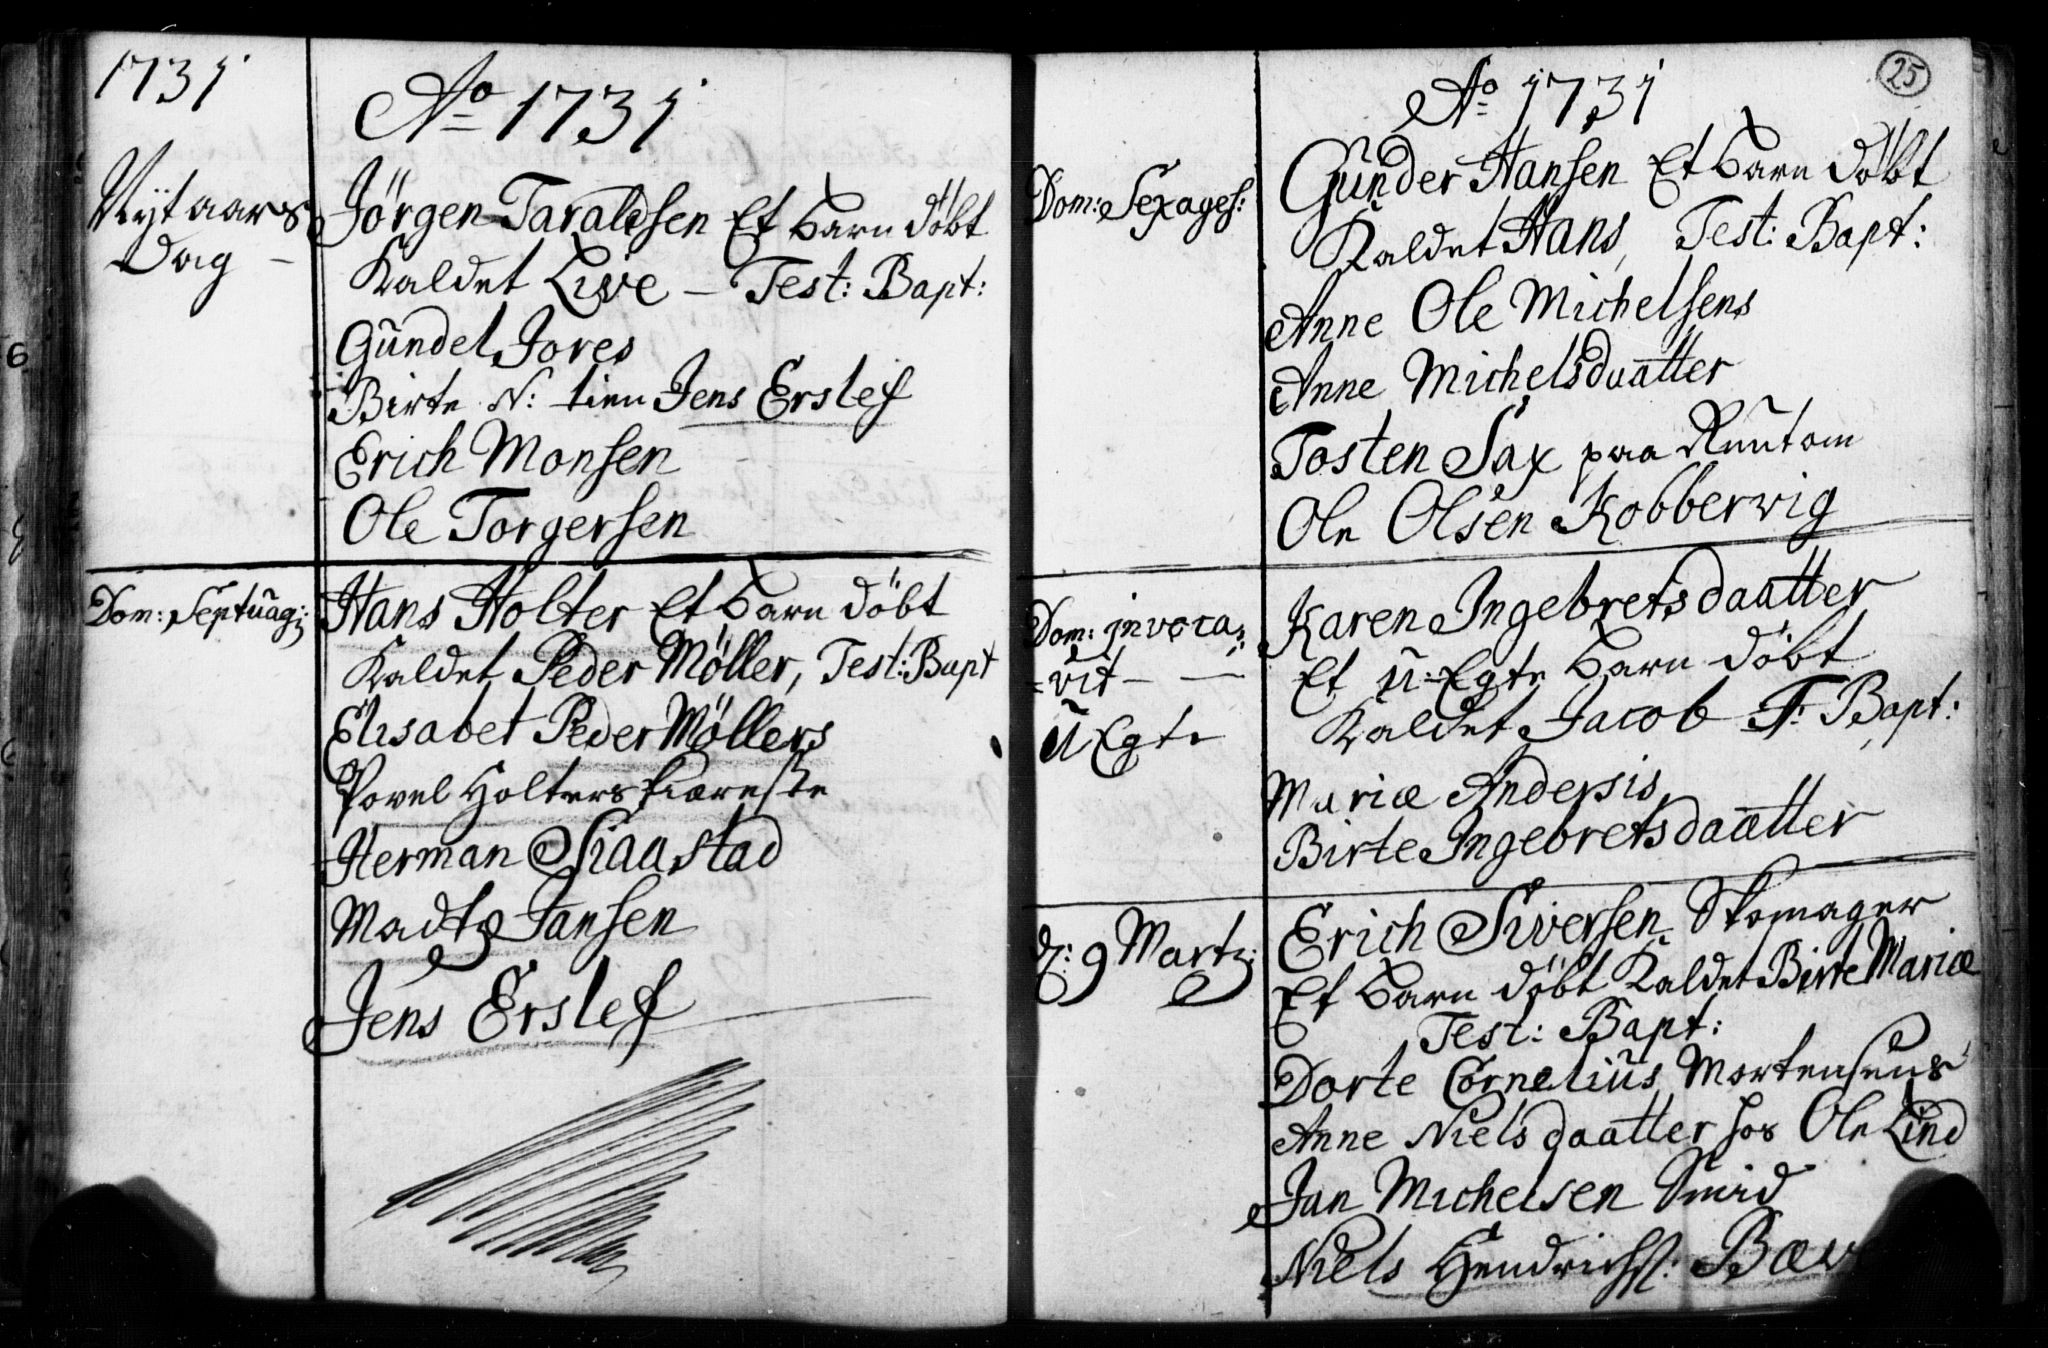 1731
Ao 1731
Nÿt aars
Dag -
Jörgen Taraldsen Et barn döbt
Kaldet Live - Test: Bapt:
Gündel Jores
Birte N: tien Jens Erslef
Erich Monsen
Ole Torgersen
Dom: Septuag:
Hans Holter Et barn döbt
Kaldet Peder Möller, Test: Bapt
Elisabet Peder Möllers
Povel Holters kiæreste
Herman Siaastad
Madtz Jansen
Jens Erslef
25
Ao 1731
Dom: Sexages:
Gunder Hansen Et barn döbt
Kaldet Hans, Test: Bapt:
Anne Ole Michelsens
Anne Michelsdaatter
Tosten Sax paa
Ole Olsen Kobberwig
Dom: invoca=
=vit -
U Egte
Karen Ingebretsdaatter
Et U-Egte barn döbt
Kaldet Jacob T: Bapt:
Mariæ Andersis
Birte Ingebretsdaatter
d: 9 Martz:
Erich Siversen Skomager
Et barn döbt Kaldet Birte Mariæ
Test: Bapt:
Dorte Cornelius Mortensens
Anne Nielsdaatter hos Ole Lind
Jan Michelsen Smid
Niels Hendrichs: